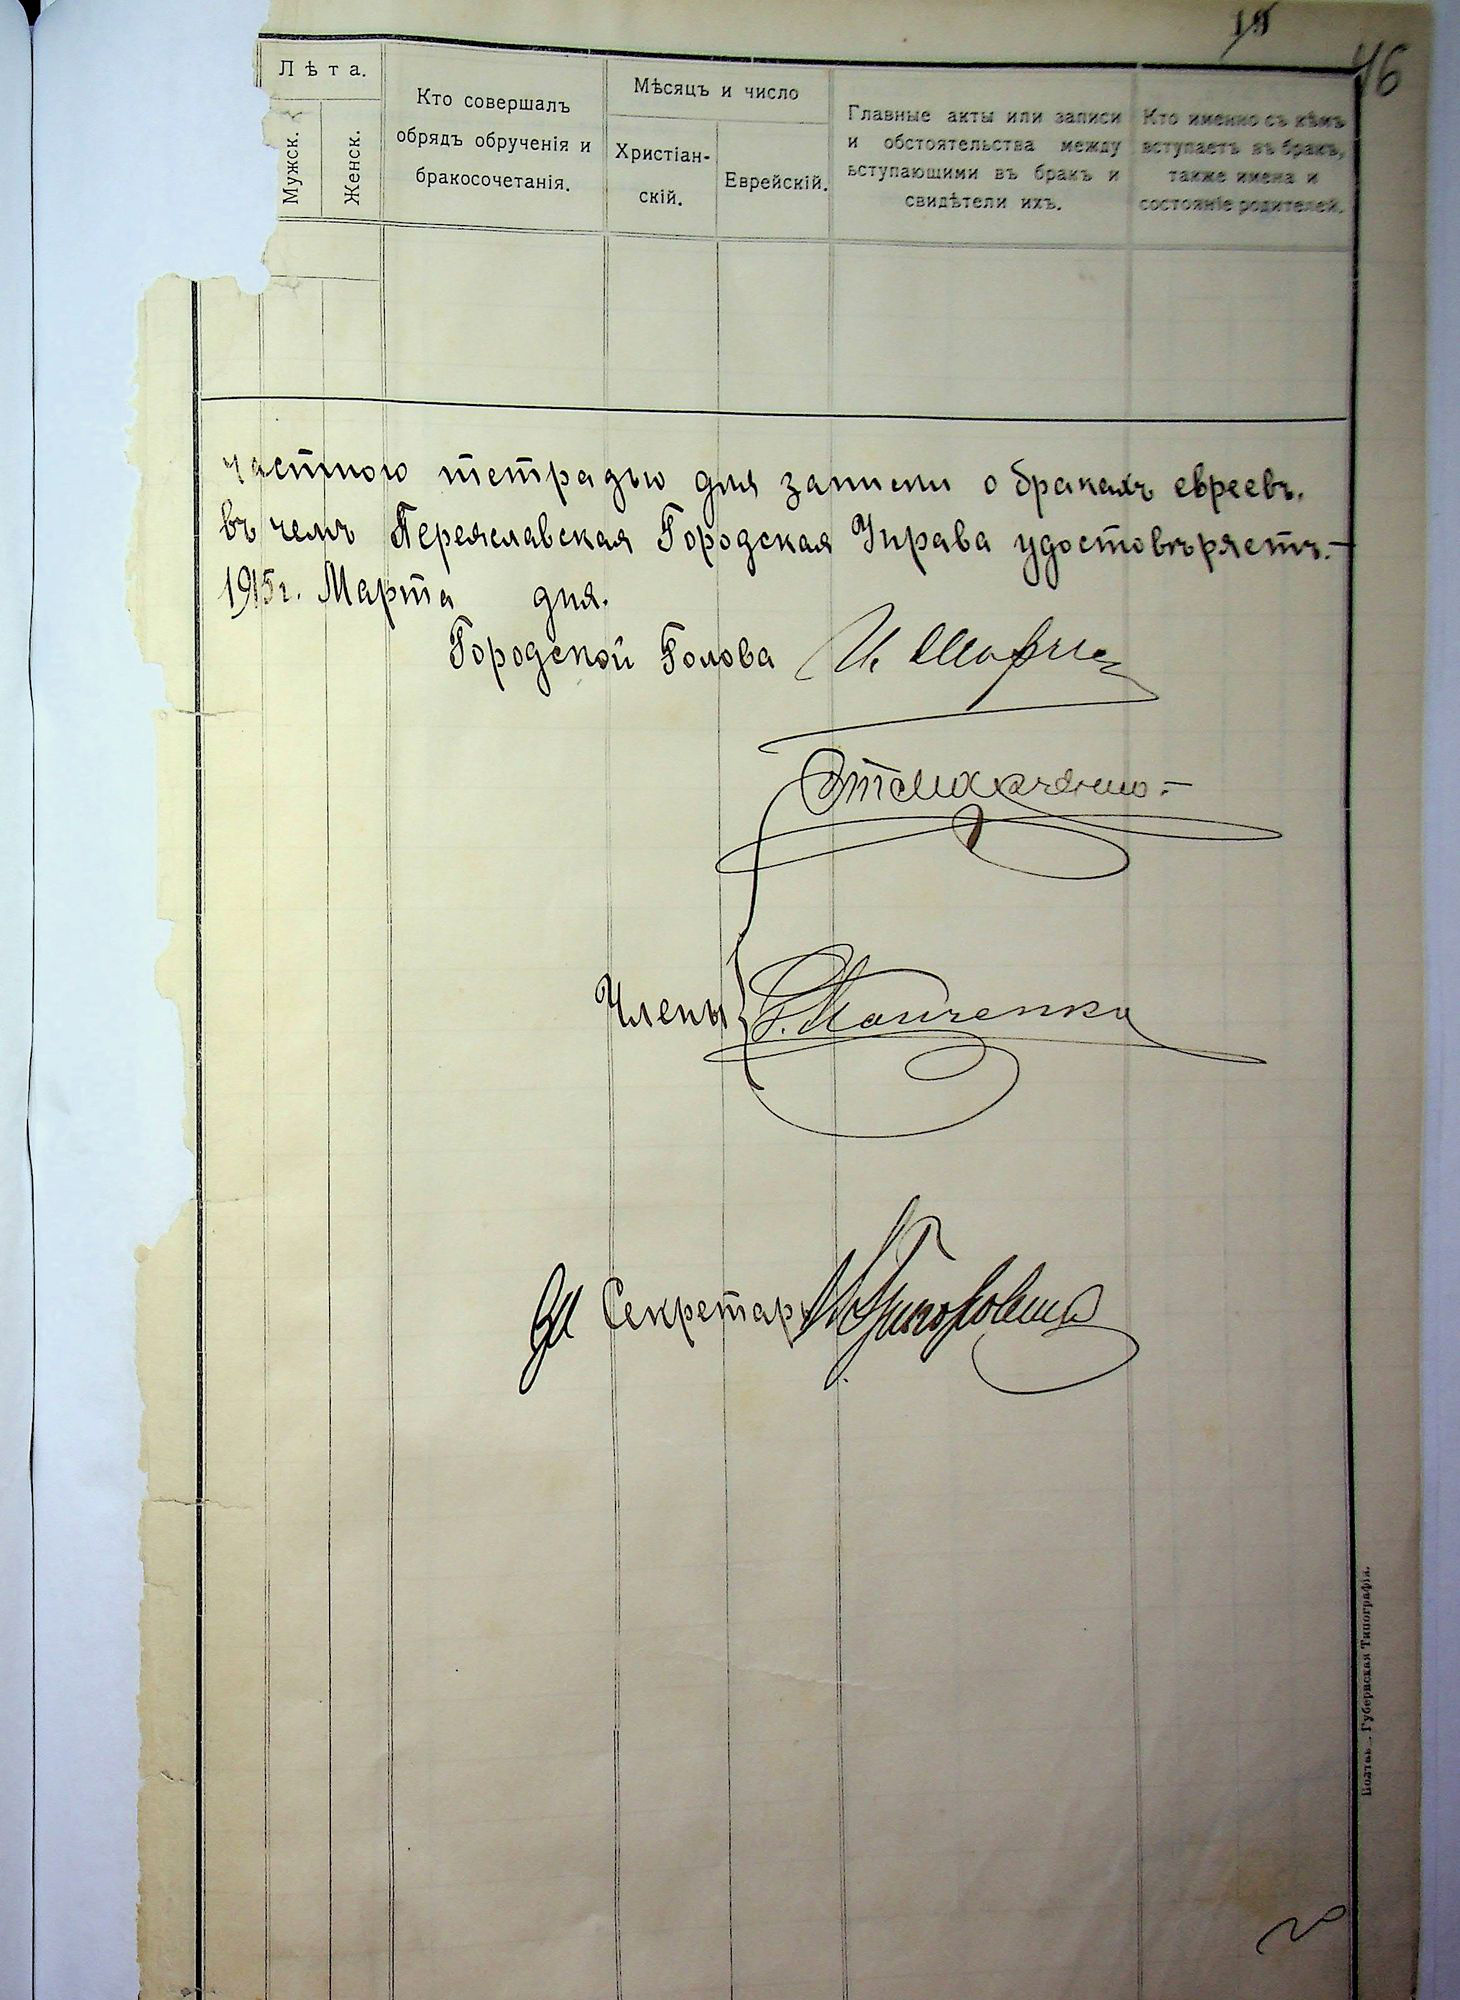 46
Лѣта.
Мужск.
Женск.
Кто совершалъ
обрядъ обрученія и
бракосочетанія.
Мѣсяцъ и число
Христіан-
скій.
Еврейскій.
Главные акты или записи
и обстоятельства между
вступающими въ бракъ и
свидѣтели ихъ.
Кто именно съ кѣмъ
вступаетъ въ бракъ,
также имена и
состояніе родителей.
частною тетрадью для записи о бракахъ евреевъ,
въ чемъ Переяславская Городская Управа удостовѣряетъ.—
1915г. Марта дня.
Городской Голова
Члены
Секретарь
Губернская Типографія.